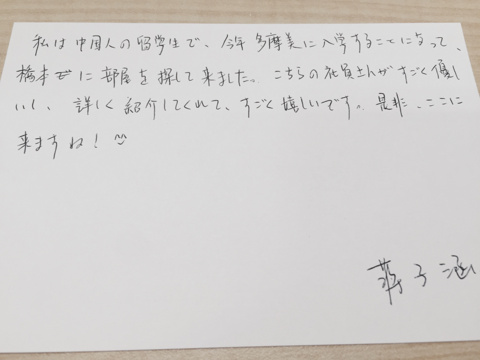 私は中国人の留学生で、今年多摩美に入学することになって、
橋本に部屋を探して来ました。こちらの社員さんがすごく優し
いし、詳しく紹介してくれて、すごく嬉しいです。是非、ここに
来ますね！
蒋子涵